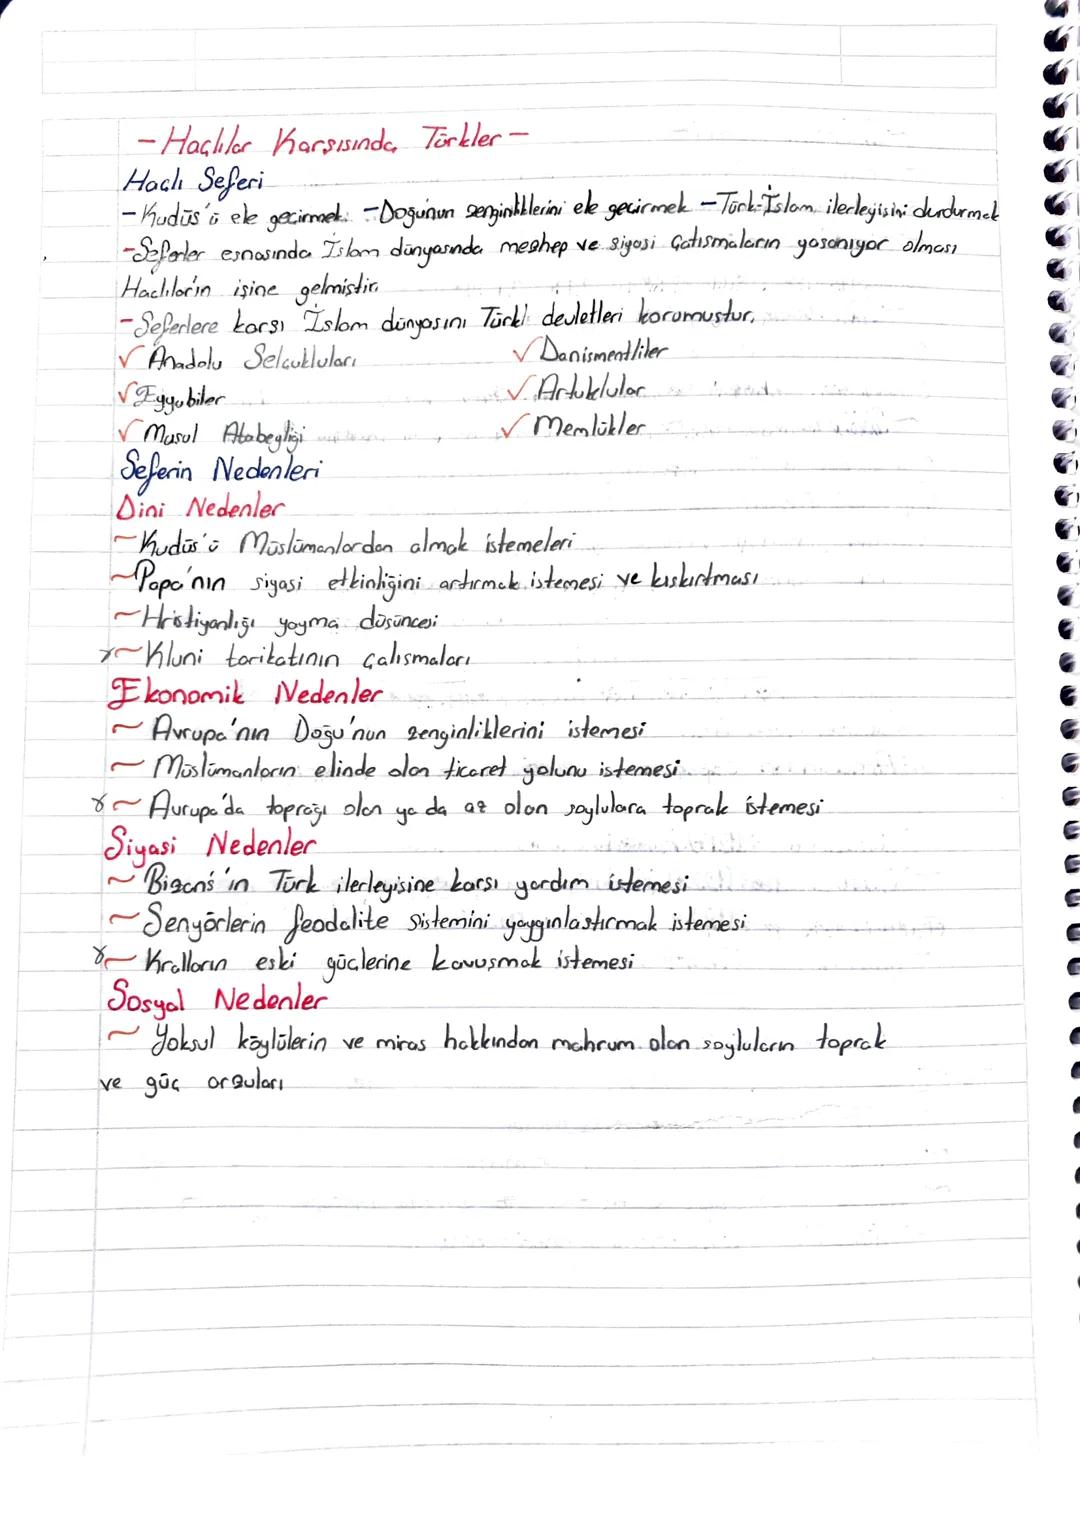 - Haçlılar Karşısında Türkler -
Haçlı Seferi
- Kudüs'ü ele geçirmek. - Doğunun zenginliklerini ele geçirmek - Türk-İslam ilerleyişini durdurmak
- Seferler esnasında İslam dünyasında meshep ve siyasi çatışmaların yaşanıyor olması
Haçlıların işine gelmiştir.
- Seferlere karşı İslam dünyasını Türk devletleri korumuştur.
✓ Anadolu Selçukluları ✓ Danişmentliler
✓ Eyyubiler ✓ Artuklular
✓ Musul Atabeyliği ✓ Memlükler
Seferin Nedenleri
Dini Nedenler
~ Kudüs'ü Müslümanlardan almak istemeleri
~ Papa'nın siyasi etkinliğini artırmak istemesi ve kışkırtması
~ Hristiyanlığı yayma düşüncesi
~ Kluni tarikatının çalışmaları
Ekonomik Nedenler
~ Avrupa'nın Doğu'nun zenginliklerini istemesi
~ Müslümanların elinde olan ticaret yolunu istemesi
~ Avrupa'da toprağı olan ya da az olan soylulara toprak istemesi
Siyasi Nedenler
~ Bizans'ın Türk ilerleyişine karşı yardım istemesi
~ Senyörlerin feodalite sistemini yaygınlaştırmak istemesi
~ Kralların eski güçlerine kavuşmak istemesi
Sosyal Nedenler
~ Yoksul köylülerin ve miras hakkından mahrum olan soyluların toprak
ve güç arzuları